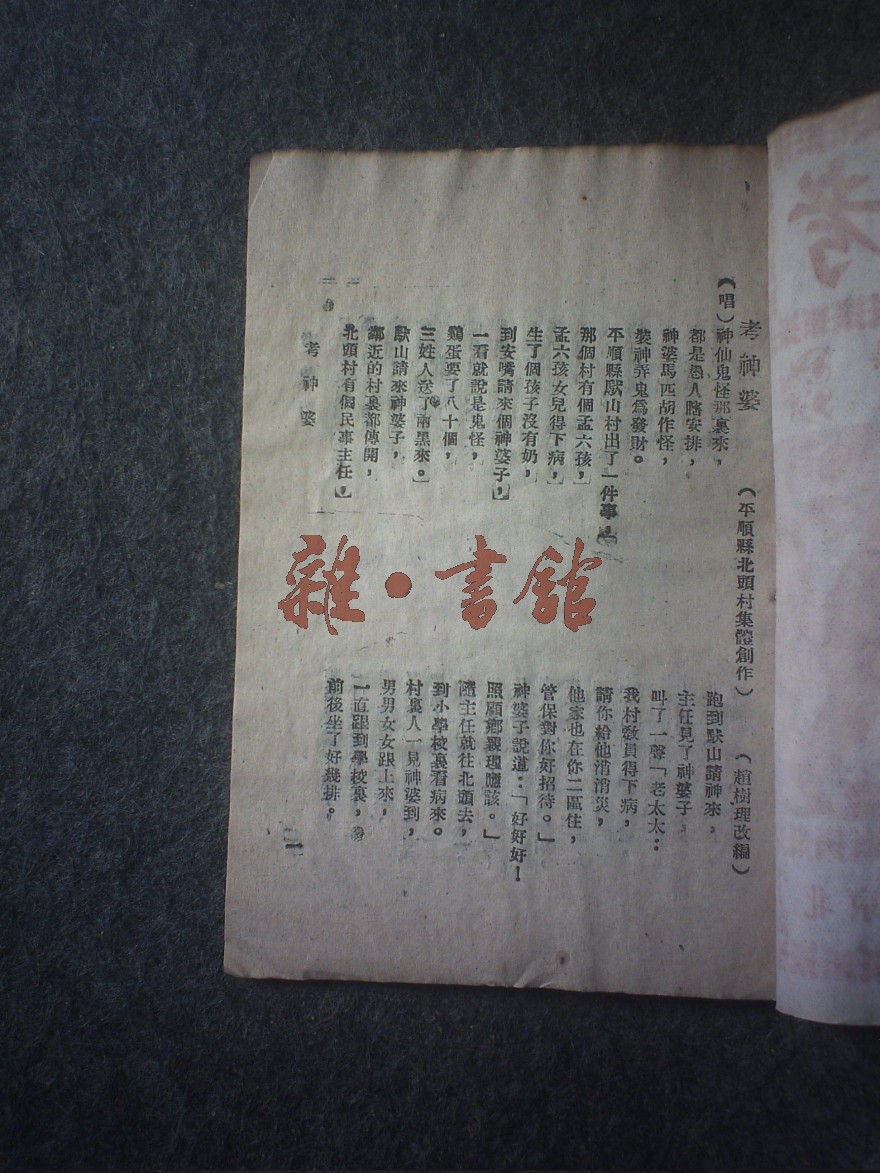 考神婆
（平順縣北頭村集體創作）
（趙樹理改編）
（唱）神仙鬼怪那裏來，
都是愚人瞎安排，
神婆馬匹胡作怪，
裝神弄鬼爲發財。
平順縣默山村出了一件事，
那個村有個孟六孩，
孟六孩女兒得下病，
生了個孩子沒有奶，
到安嘴請來個神婆子，
一看就說是鬼怪，
鷄蛋要了八十個，
三姓人送了兩黑來。
默山請來神婆子，
鄰近的村裏都傳開，
北頭村有個民事主任，
跑到默山請神來，
主任見了神婆子，
叫了一聲「老太太：
我村敎員得下病，
請你給他消消災，
他家也在你二區住，
管保對你好招待。」
神婆子說道：「好好好！
照顧鄉親理應該。」
隨主任就往北頭去，
到小學校裏看病來。
村裏人一見神婆到，
男男女女跟上來，
一直跟到學校裏，
前後坐了好幾排。
考神婆
一
雜·書館
考